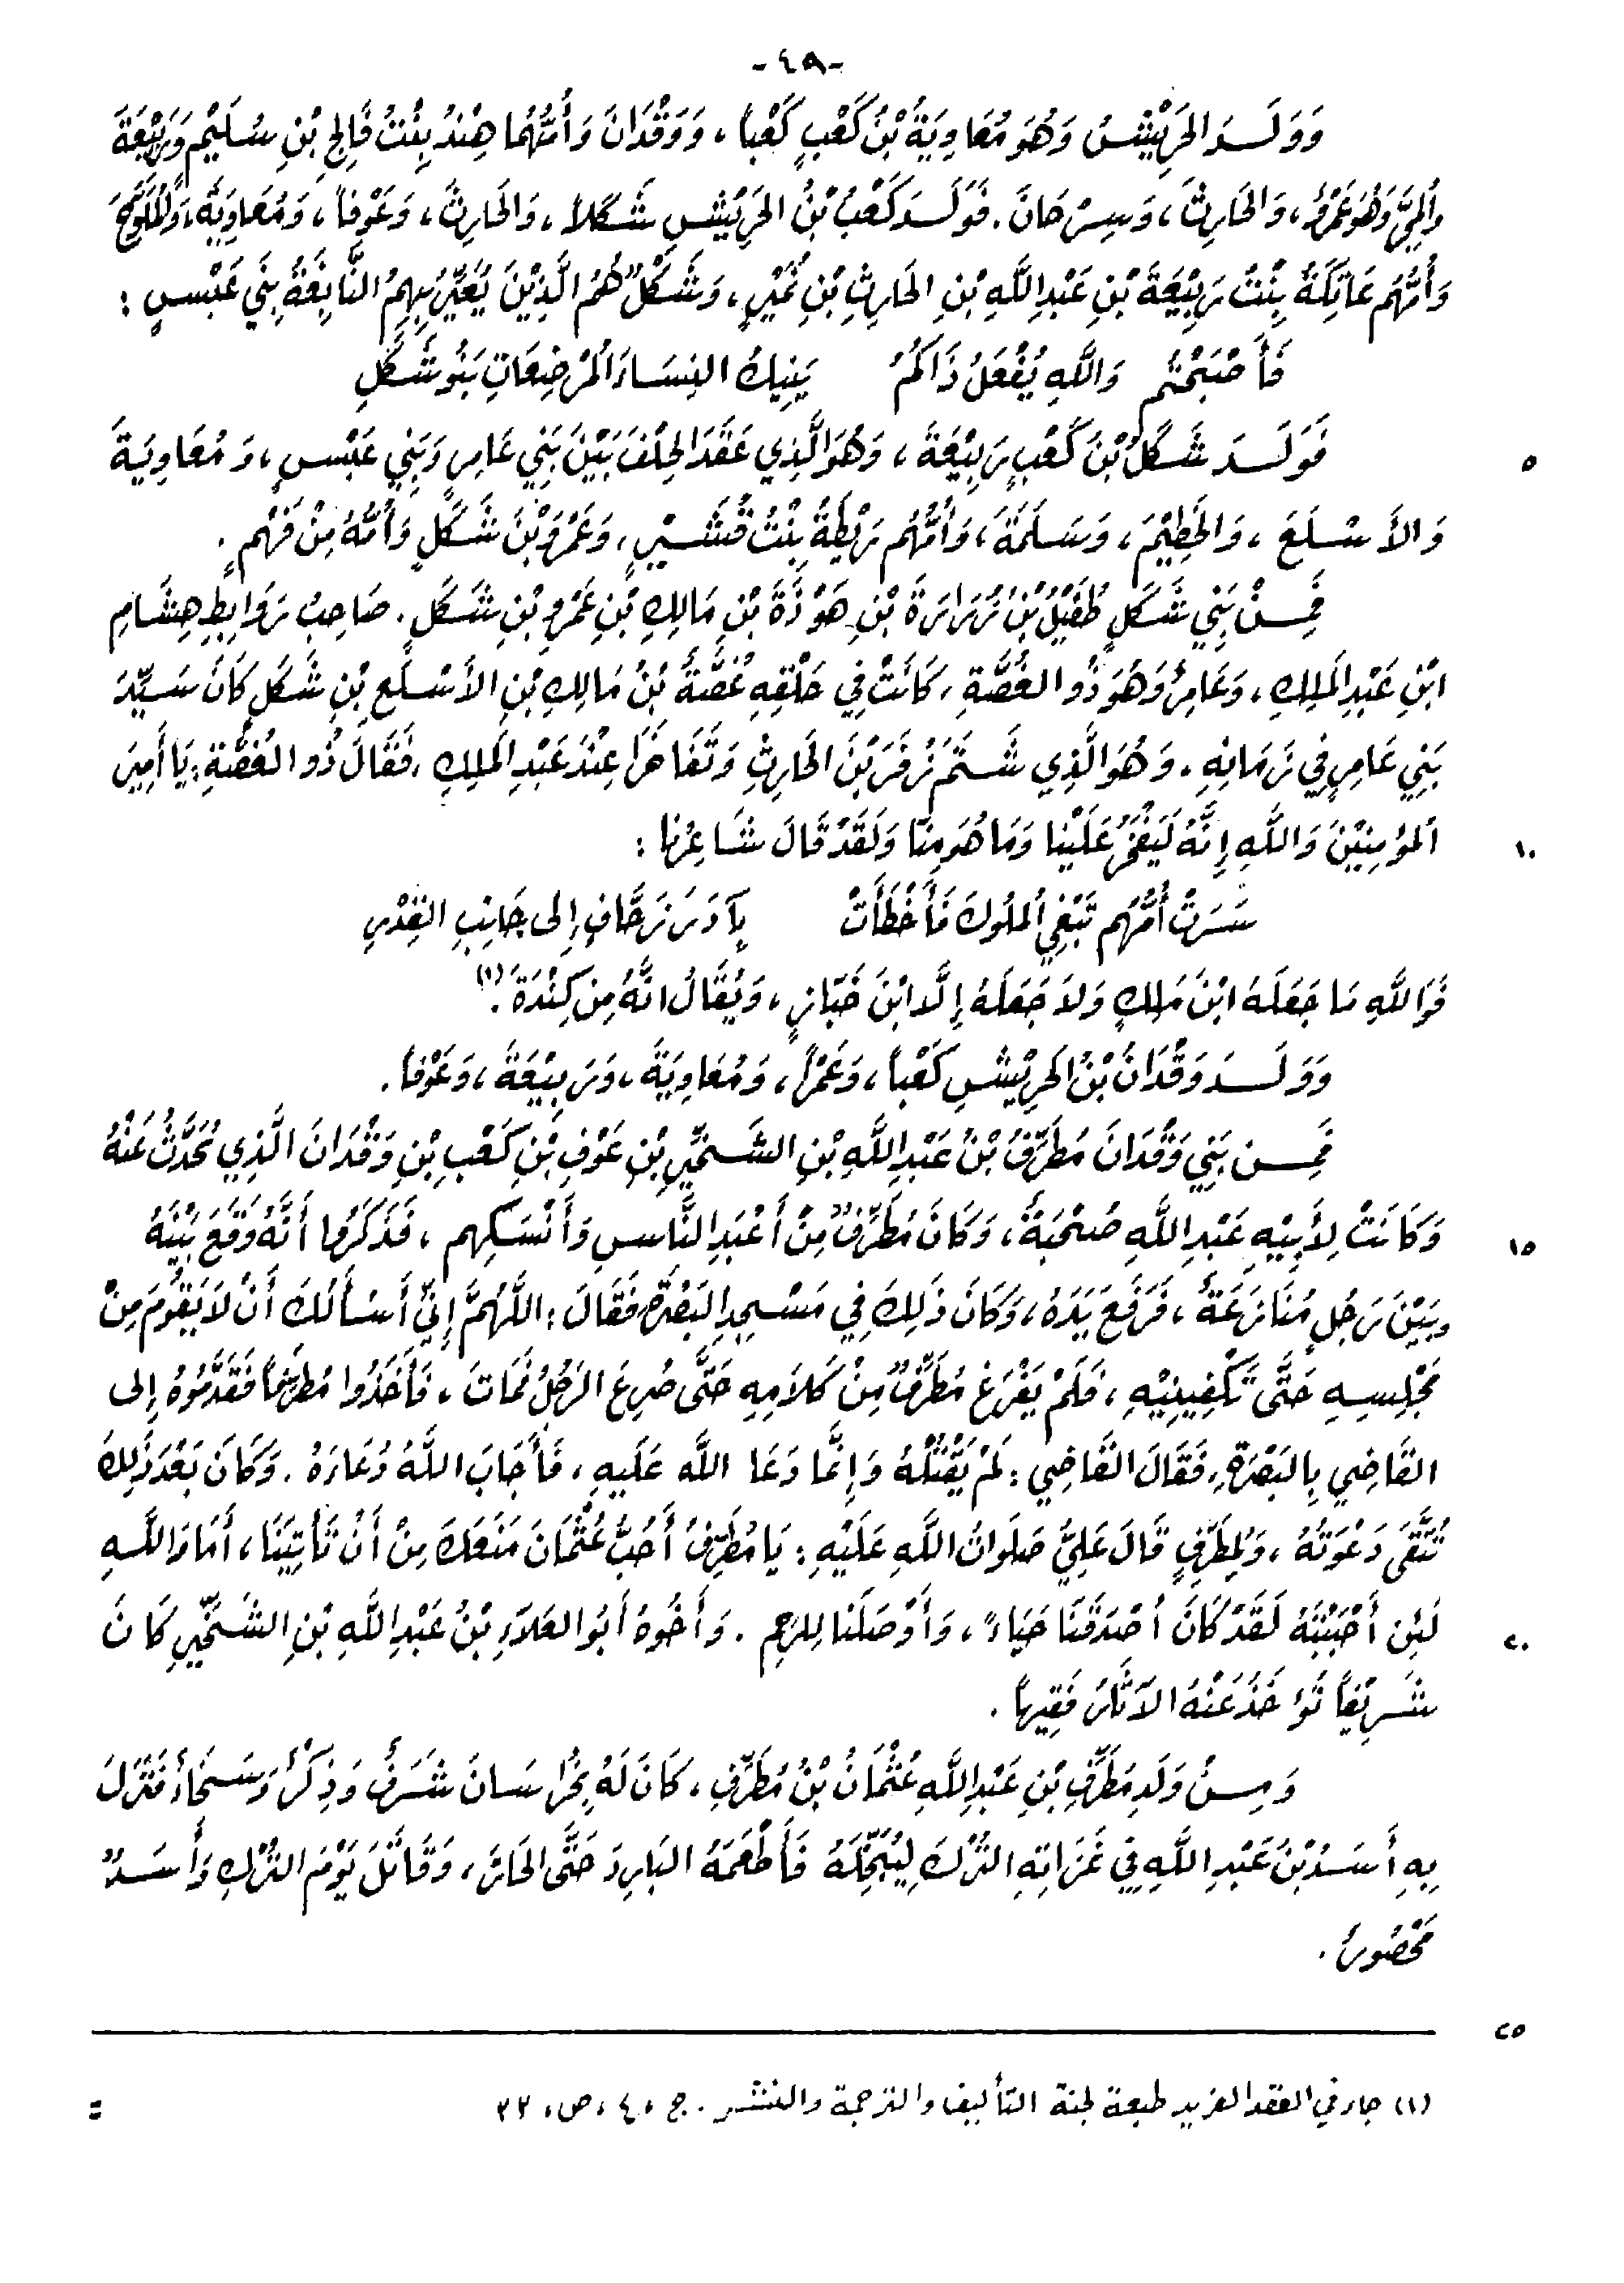 -٤٩-
وَوَلَدَ الحَرِيْشُ وَهُوَ مُعَاوِيَةُ بْنُ كَعْبٍ كَعْباً، وَوَقْدَانَ وَأُمُّهُما هِنْدُ بِنْتُ فَالِجِ بْنِ سُلَيْمٍ وَرَبِيْعَةَ
وَالمِجَرَّ وَهُوَ عَمْرٌو، وَالحَارِثَ، وَسِرْحَانَ. فَوَلَدَ كَعْبُ بْنُ الحَرِيْشِ شَكَلاً، وَالحَارِثَ، وَعَوْفاً، وَمُعَاوِيَةَ، وَالمُلَوَّحَ
وَأُمُّهُم عَاتِكَةُ بِنْتُ رَبِيْعَةَ بْنِ عَبْدِ اللَّهِ بْنِ الحَارِثِ بْنِ نُمَيْرٍ، وَشَكَلٌ هُمُ الَّذِيْنَ يُعَيِّرُ بِهِمُ النَّابِغَةُ بَنِي عَبْسٍ :
فَأَصْبَحْتُم وَاللَّهِ يُفْعَلُ ذَاكُمُ يَنِيكُ النِسَاءَ المُرْضِعَاتِ بَنُو شَكَلِ
فَوَلَدَ شَكَلُ بْنُ كَعْبٍ رَبِيْعَةَ، وَهُوَ الَّذِي عَقَدَ الحِلْفَ بَيْنَ بَنِي عَامِرٍ وَبَنِي عَبْسٍ، وَمُعَاوِيَةَ ٥
وَالأَسْلَعَ، وَالحَطِيْمَ، وَسَلَمَةَ، وَأُمُّهُم رَيْطَةُ بِنْتُ قُشَيْرٍ، وَعَمْرَو بْنَ شَكَلٍ وَأُمُّهُ مِنْ فَهْمٍ .
فَمِنْ بَنِي شَكَلٍ طُفَيْلُ بْنُ زُرَارَةَ بْنِ هَوْذَةَ بْنِ مَالِكِ بْنِ عَمْرِو بْنِ شَكَلٍ. صَاحِبُ رَوَابِطِ هِشَامِ
ابْنِ عَبْدِ المَلِكِ، وَعَامِرٌ وَهُوَ ذُو الغُصَّةِ، كَانَتْ فِي حَلْقِهِ غُصَّةٌ بْنُ مَالِكِ بْنِ الأَسْلَعِ بْنِ شَكَلٍ كَانَ سَيِّدَ
بَنِي عَامِرٍ فِي زَمَانِهِ. وَهُوَ الَّذِي شَتَمَ زُفَرَ بْنَ الحَارِثِ وَتَفَاخَرَا عِنْدَ عَبْدِ المَلِكِ، فَقَالَ ذُو الغُصَّةِ: يَا أَمِيرَ
المُؤمِنِيْنَ وَاللَّهِ إِنَّهُ لَيَفْخَرُ عَلَيْنا وَمَا هُوَ مِنّا وَلَقَدْ قَالَ شَاعِرُنا : ١٠
سَرَتْ أُمُّهُم تَبْغِي المُلُوكَ فَأَخْطَأَتْ بِآدَرَ زَحَّافٍ إِلى جَانِبِ القِدْرِ
فَوَاللَّهِ مَا جَعَلَهُ ابْنَ مَلِكٍ وَلاَ جَعَلَهُ إِلَّا ابْنَ خَبّازٍ، وَيُقَالُ انَّهُ مِن كِنْدَةَ.(١)
وَوَلَدَ وَقْدَانُ بْنُ الحَرِيْشِ كَعْباً، وَعَمْراً، وَمُعَاوِيَةَ، وَرَبِيْعَةَ، وَعَوْفاً .
فَمِن بَنِي وَقْدَانَ مُطَرِّفُ بْنُ عَبْدِ اللَّهِ بْنِ الشَّخِّيرِ بْنِ عَوْفِ بْنِ كَعْبِ بْنِ وَقْدَانَ الَّذِي يُحَدَّثُ عَنْهُ
وَكَانَتْ لِأَبِيْهِ عَبْدِ اللَّهِ صُحْبَةٌ، وَكَانَ مُطَرِّفٌ مِنْ أَعْبَدِ النَّاسِ وَأَنْسَكِهِم، فَذَكَرُوا أَنَّهُ وَقَعَ بَيْنَهُ ١٥
وبَيْنَ رَجُلٍ مُنَازَعَةٌ، فَرَفَعَ يَدَهُ، وَكَانَ ذَلِكَ فِي مَسْجِدِ البَصْرَةِ فَقَالَ: اللَّهُمَّ إِنِّي أَسْأَلُكَ أَنْ لاَ يَقُومَ مِنْ
مَجْلِسِهِ حَتَّى تَكْفِينِيْهِ، فَلَمْ يَفْرَغْ مُطَرِّفٌ مِنْ كَلاَمِهِ حَتَّى صُرِعَ الرَجُلُ فَمَاتَ، فَأَخَذُوا مُطَرِّفاً فَقَدَّمُوهُ إِلى
القَاضِي بِالبَصْرَةِ، فَقَالَ القَاضِي: لَمْ يَقْتُلْهُ وَإِنَّمَا دَعَا اللَّه عَلَيهِ، فَأَجَابَ اللَّهُ دُعَاءَهُ. وَكَانَ بَعْدَ ذَلِكَ
تُتَّقَى دَعْوَتُهُ، وَلِمُطَرِّفٍ قَالَ عَلِيٌّ صَلَوَاتُ اللَّهِ عَلَيْهِ: يَا مُطَرِّفُ أَحُبُّ عُثْمَانَ مَنَعَكَ مِنْ أَنْ تَأْتِيَنَا، أَمَا وَاللَّهِ
لَئِن أَحْبَبْتَهُ لَقَدْ كَانَ أصْدَقَنَا حَيَاءً، وَأَوْصَلَنا لِلرَحِمِ. وَأَخُوهُ أَبُو العَلاَءِ بْنُ عَبْدِ اللَّهِ بْنِ الشِّخِّيرِ كَانَ ٢٠
شَرِيْفاً تُؤخَذُ عَنْهُ الآثَارُ فَقِيهاً .
وَمِنْ وَلَدِ مُطَرِّفِ بْنِ عَبْدِ اللَّهِ عُثْمَانُ بْنُ مُطَرِّفٍ، كَانَ لَهُ بِخُرَاسَانَ شَرَفٌ وَذِكْرٌ وَسَخَاءٌ فَنَزَلَ
بِهِ أَسَدُ بْنُ عَبْدِ اللَّهِ فِي غَزَاتِهِ التُّرْكَ لِيُبَخِّلَهُ فَأَطْعَمَهُ البَارِدَ حَتَّى الحَارَّ، وَقَاتَلَ يَوْمَ التُّرْكِ وَأَسَدٌ
مَحْصُورٌ .
٢٥
(١) جاء في العقد الفريد طبعة لجنة التأليف والترجمة والنشر. ج ٤، ص ٣٣ =